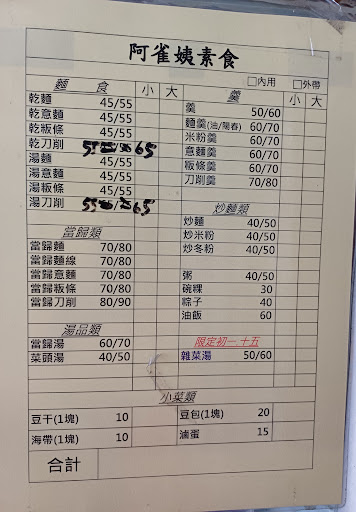 阿雀姨素食
□內用 □外帶
麵 食 小 大
乾麵 45/55
乾意麵 45/55
乾粄條 45/55
乾刀削 55 65
湯麵 45/55
湯意麵 45/55
湯粄條 45/55
湯刀削 55 / 65
當歸類
當歸麵 70/80
當歸麵線 70/80
當歸意麵 70/80
當歸粄條 70/80
當歸刀削 80/90
湯品類
當歸湯 60/70
菜頭湯 40/50
羹 小 大
羹 50/60
麵羹(油/陽春) 60/70
米粉羹 60/70
意麵羹 60/70
粄條羹 60/70
刀削羹 70/80
炒麵類
炒麵 40/50
炒米粉 40/50
炒冬粉 40/50
粥 40/50
碗粿 30
粽子 40
油飯 60
限定初一 十五
雜菜湯 50/60
小菜類
豆干(1塊) 10 豆包(1塊) 20
海帶(1塊) 10 滷蛋 15
合計